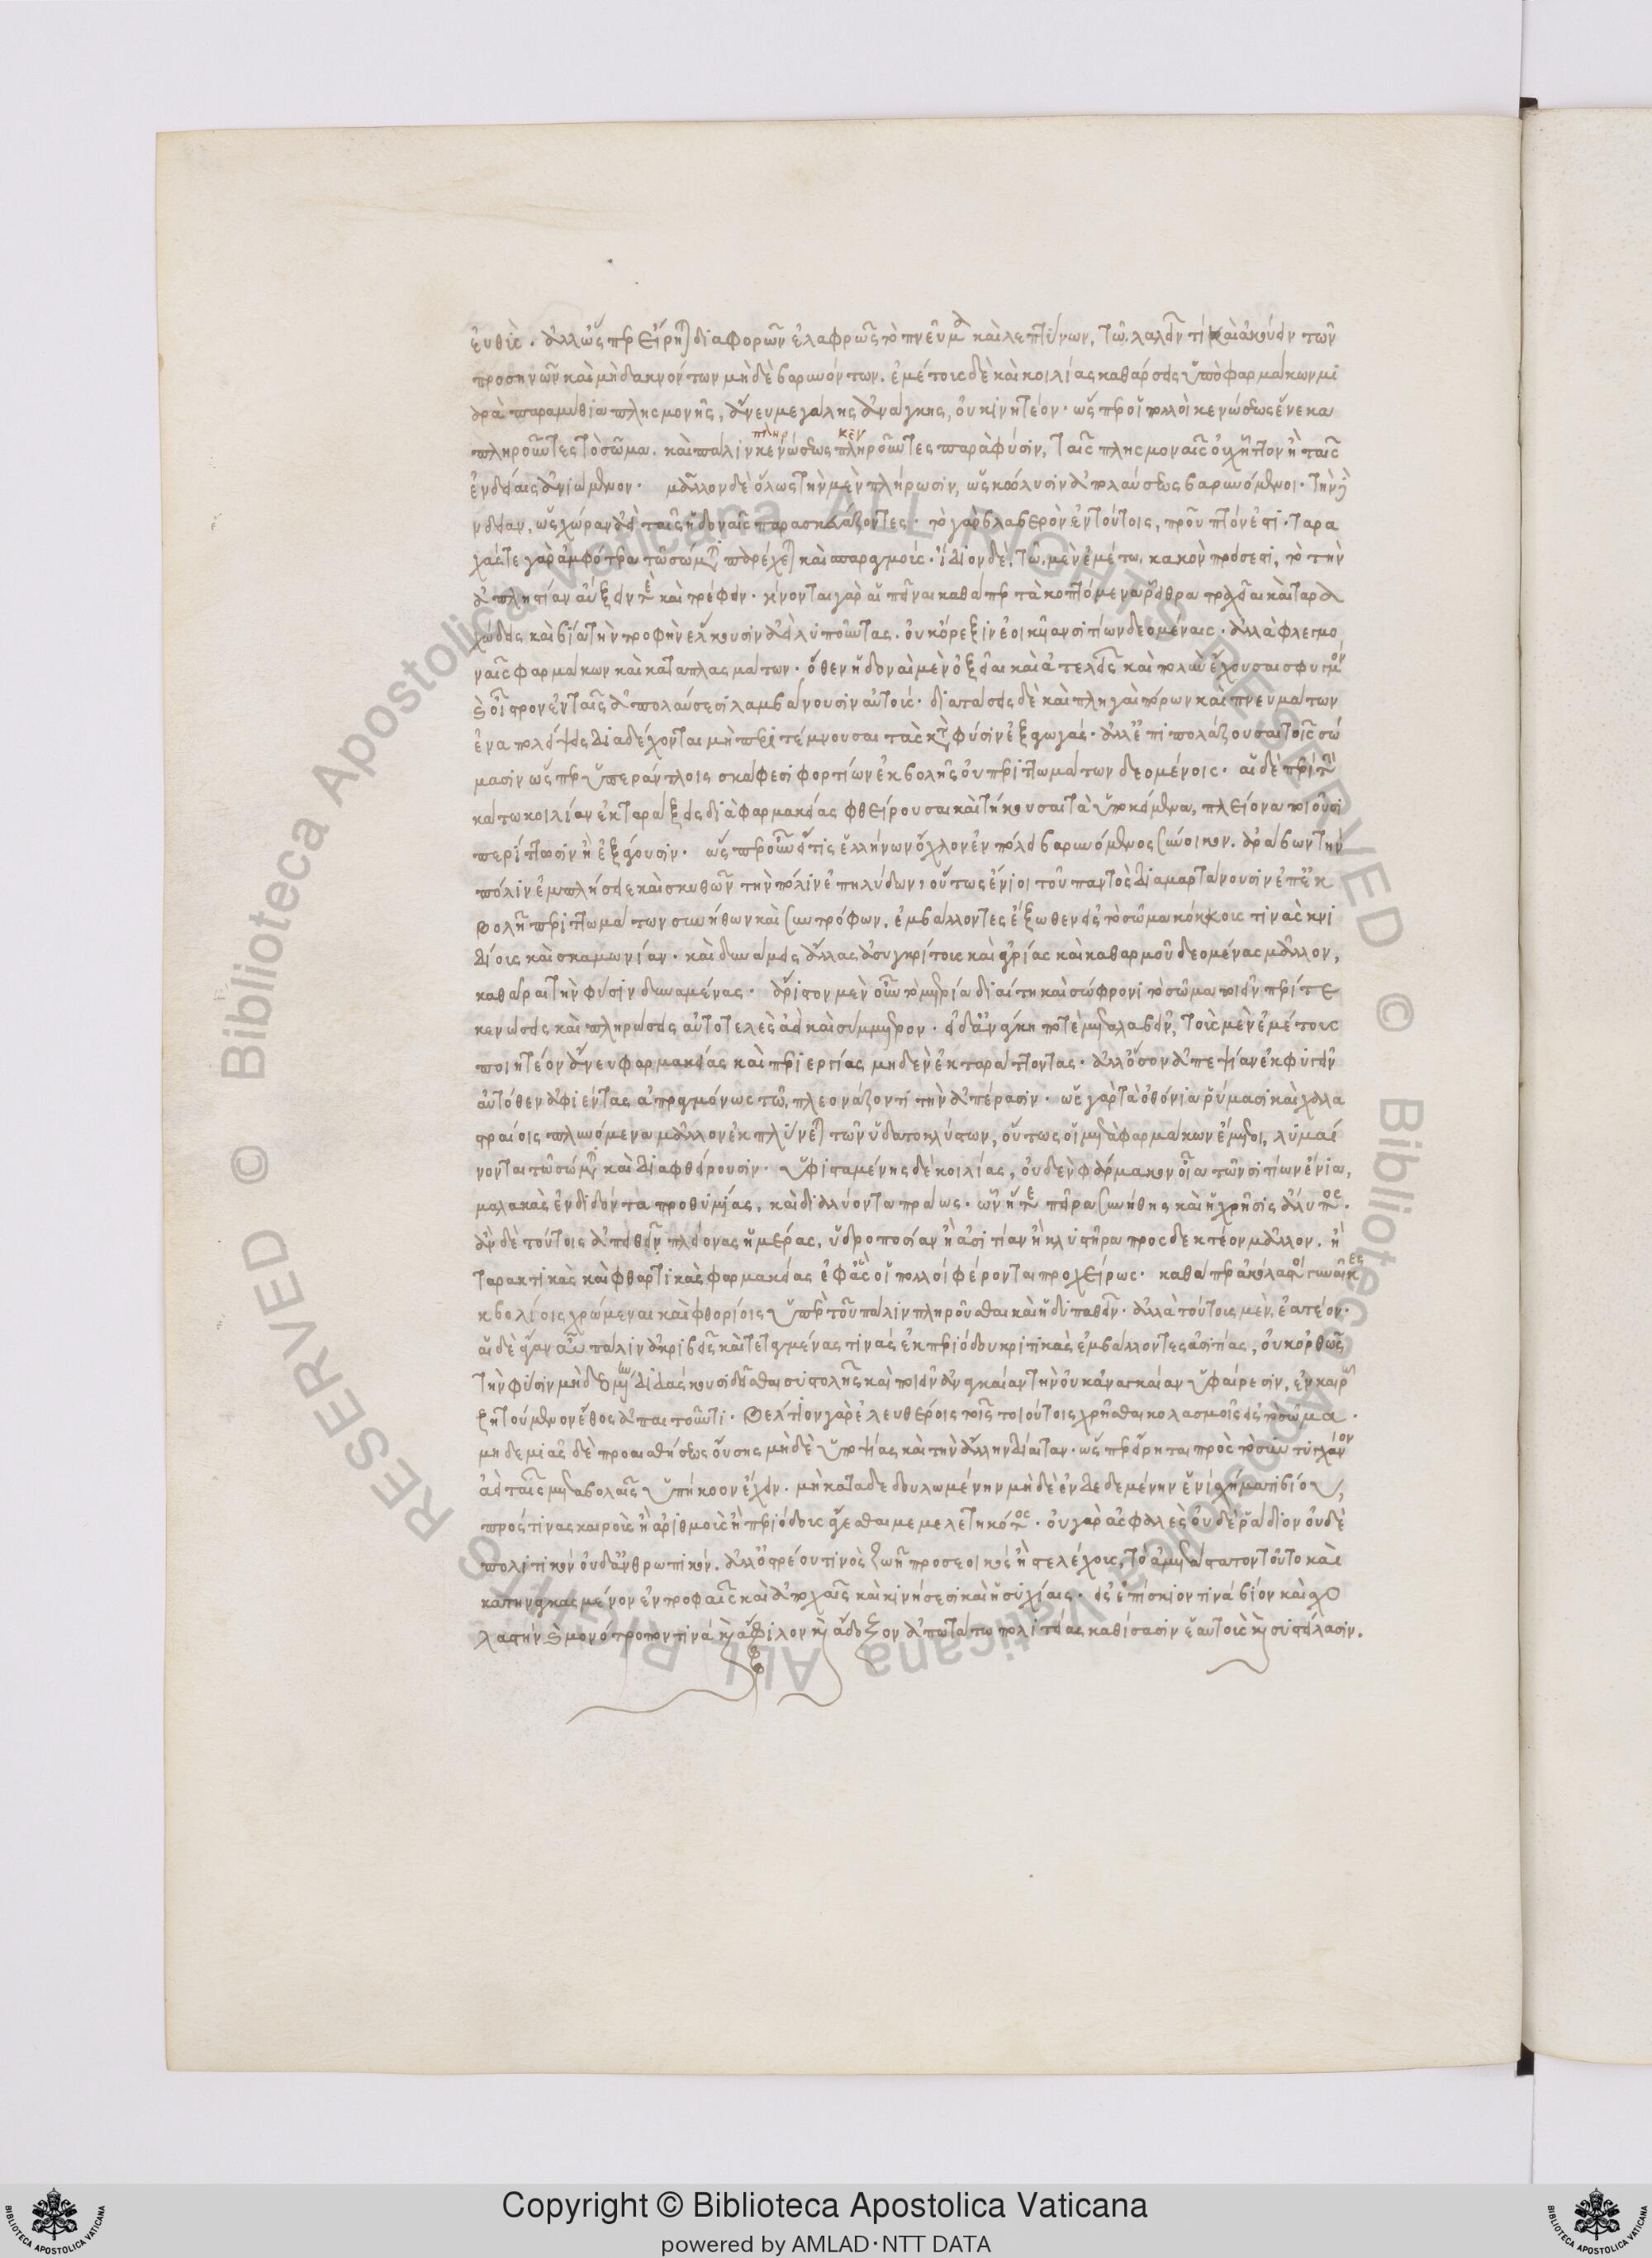 εὐθύς. ἀλλ' ὥσπερ εἴρηται διαφορῶν ἐλαφρῶς τὸ πνεῦμα καὶ λεπτύνων, τῷ λαλεῖν τι καὶ ἀκούειν τῶν
προσηνῶν καὶ μὴ δακνόντων μὴ δὲ βαρυνόντων. ἐμέτους δὲ καὶ κοιλίας καθάρσεις ὑπὸ φαρμάκων μι
αρὰ παραμύθια πλησμονῆς, ἄνευ μεγάλης ἀνάγκης, οὐ κινητέον. ὥσπερ οἱ πολλοὶ κενώσεως ἕνεκα
πληροῦντες τὸ σῶμα. καὶ πάλιν κενώσεως πληροῦντες παρὰ φύσιν, ταῖς πλησμοναῖς οὐχ ἧττον ἢ ταῖς
ἐνδείαις ἀνιώμενον. μᾶλλον δὲ ὅλως τὴν μὲν πλήρωσιν, ὡς κώλυσιν ἀπολαύσεως βαρυνόμενοι. τὴν δὲ ἔ
νδειαν, ὡς χώραν ἀεὶ ταῖς ἡδοναῖς παρασκευάζοντες. τὸ γὰρ βλαβερὸν ἐν τούτοις, προῦπτόν ἐστι. ταρα
χάς τε γὰρ ἀμφότερα τῷ σώματι παρέχεται καὶ σπαραγμούς. ἴδιον δὲ, τῷ μὲν ἐμέτῳ κακὸν πρόσεστι, τὸ τὴν
ἀπληστίαν αὔξειν τε καὶ τρέφειν. γίνονται γὰρ αἱ πεῖναι καθάπερ τὰ κοπτόμενα ῥεῖθρα τραχεῖαι καὶ ταρα
χώδεις καὶ βίᾳ τὴν τροφὴν ἕλκουσιν ἀεὶ λυποῦντας. οὐκ ὀρέξεσιν ἐοικυῖαι σιτίων δεομέναις. ἀλλὰ φλεγμο
ναῖς φαρμάκων καὶ καταπλασμάτων. ὅθεν ἡδοναὶ μὲν ὀξεῖαι καὶ ἀτελεῖς καὶ πολὺν ἔχουσαι σφυγμὸν
καὶ οἶστρον ἐν ταῖς ἀπολαύσεσι λαμβάνουσιν αὐτούς. διατάσεις δὲ καὶ πληγαὶ πόρων καὶ πνευμάτων
ἐναπολείψεις διαδέχονται μὴ περιτέμνουσαι τὰς κατὰ φύσιν ἐξαγωγάς. ἀλλ' ἐπιπολάζουσαι τοῖς σώ
μασιν ὥσπερ ὑπεράντλοις σκάφεσι φορτίων ἐκβολῆς οὐ περιττωμάτων δεομένοις. αἱ δὲ περὶ τὴν
κάτω κοιλίαν ἐκταράξεις διὰ φαρμακείας φθείρουσαι καὶ τήκουσαι τὰ ὑποκείμενα, πλείονα ποιοῦσι
περίττωσιν ἢ ἐξάγουσιν. ὥσπερ οὖν εἴ τις ἑλλήνων ὄχλον ἐν πόλει βαρυνόμενος σύνοικον. ἀράβων τὴν
πόλιν ἐμπλήσειε καὶ σκυθῶν τὴν πόλιν ἐπηλύδων, οὕτως ἔνιοι τοῦ παντὸς διαμαρτάνουσιν ἐπ' ἐκ
βολῇ περιττωμάτων συνήθων καὶ συντρόφων. ἐμβάλλοντες ἔξωθεν εἰς τὸ σῶμα κόκκους τινὰς κνι
δίους καὶ σκαμωνίαν. καὶ δυνάμεις ἄλλας ἀσυγκρίτους καὶ ἀγρίας καὶ καθαρμοῦ δεομένας μᾶλλον,
καθᾶραι τὴν φύσιν δυναμένας. ἄριστον μὲν οὖν τὸ μετρίᾳ διαίτῃ καὶ σώφρονι τὸ σῶμα ποιεῖν περί τε
κενώσεις καὶ πληρώσεις αὐτοτελὲς ἀεὶ καὶ σύμμετρον. εἰ δ' ἀνάγκη ποτὲ μεταλαβεῖν, τοὺς μὲν ἐμέτους
ποιητέον ἄνευ φαρμακείας καὶ περιεργίας μηδὲν ἐκταράττοντας. ἀλλ' ὅσον ἀπεψίαν ἐκφυγεῖν
αὐτόθεν ἀφιέντας ἀπραγμόνως τῷ πλεονάζοντι τὴν ἀπέρασιν. ὡς γὰρ τὰ ὀθόνια ῥύμμασι καὶ χαλα
στραίοις πλυνόμενα μᾶλλον ἐκπλύνεται τῶν ὑδατοκλύστων, οὕτως οἱ μετὰ φαρμάκων ἔμετοι, λυμαί
νονται τῷ σώματι καὶ διαφθείρουσιν. ὑφισταμένης δὲ κοιλίας, οὐδὲν φάρμακον οἷα τῶν σιτίων ἔνια,
μαλακὰς ἐνδιδόντα προθυμίας, καὶ διαλύοντα πράως. ὧν ἥ τε πεῖρα συνήθης καὶ ἡ χρῆσις ἄλυπος.
ἂν δὲ τούτοις ἀπειθῇ πλείονας ἡμέρας, ὑδροποσίαν ἢ ἀσιτίαν ἢ κλυστῆρα προσδεκτέον μᾶλλον. ἢ
ταρακτικὰς καὶ φθαρτικὰς φαρμακείας ἐφ' ἃς οἱ πολλοὶ φέρονται προχείρως. καθάπερ ἀκόλαστοι γυναῖκες
ἐκβολίοις χρώμεναι καὶ φθορίοις ὑπὲρ τοῦ πάλιν πληροῦσθαι καὶ ἡδυπαθεῖν. ἀλλὰ τούτους μὲν, ἐατέον.
οἱ δὲ ἄγαν αὖ πάλιν ἀκριβεῖς καὶ τεταγμένας τινάς ἐκ περιόδου κριτικὰς ἐμβάλλοντες ἀσιτίας, οὐκ ὀρθῶς
τὴν φύσιν μὴ δεομένην διδάσκουσι δεῖσθαι συστολῆς καὶ ποιεῖν ἀναγκαίαν τὴν οὐκ ἀναγκαίαν ὑφαίρεσιν, ἐν καιρῷ
ζητούμενον ἔθος ἀπαιτοῦντι. βέλτιον γὰρ ἐλευθέροις τοῖς τοιούτοις χρῆσθαι κολασμοῖς εἰς τὸ σῶμα.
μηδεμιᾶς δὲ προαισθήσεως οὔσης μηδὲ ὑποψίας καὶ τὴν ἄλλην δίαιταν. ὥσπερ εἴρηται πρὸς τὸ συντυγχάνον
ἀεὶ ταῖς μεταβολαῖς ὑπήκοον ἔχειν. μὴ καταδεδουλωμένην μηδὲ ἐνδεδεμένην ἑνὶ σχήματι βίου,
πρός τινας καιροὺς ἢ ἀριθμοὺς ἢ περιόδους ἄγεσθαι μεμελετηκότος. οὐ γὰρ ἀσφαλὲς οὐδὲ ῥᾴδιον οὐδὲ
πολιτικόν οὐδ' ἀνθρωπικόν. ἀλλ' ὀστρέου τινὸς ζωῇ προσεοικὸς ἢ στελέχους, τὸ ἀμετάστατον τοῦτο καὶ
κατηναγκασμένον ἐν τροφαῖς καὶ ἀποχαῖς καὶ κινήσεσι καὶ ἡσυχίαις. εἰς ἐπίσκιόν τινα βίον καὶ σχο
λαστὴν καὶ μονότροπόν τινα καὶ ἄφιλον καὶ ἄδοξον ἀπωτάτω πολιτείας καθίσασιν ἑαυτοὺς καὶ συστείλασιν.